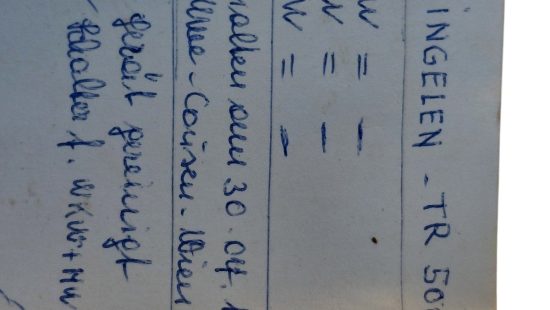 INGELEN - TR 50
W = -
W = -
W = -
halten am 30.04.
- Wien
Gerät gereinigt
Schalter f. UKW + MW